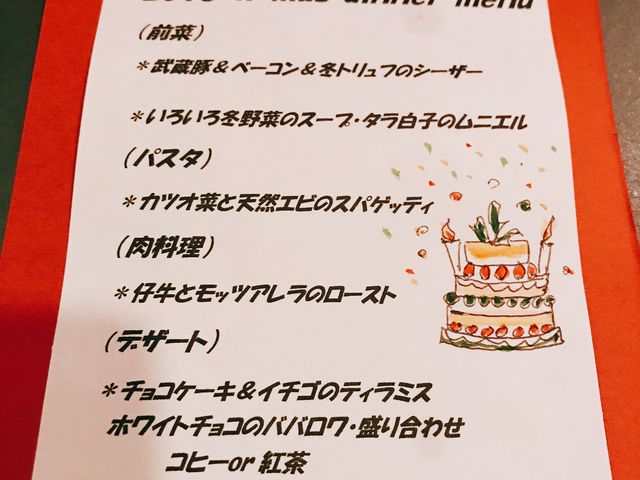 X'mas dinner menu
(前菜)
*武蔵豚&ベーコン&冬トリュフのシーザー
*いろいろ冬野菜のスープ・タラ白子のムニエル
(パスタ)
*カツオ菜と天然エビのスパゲッティ
(肉料理)
*仔牛とモッツアレラのロースト
(デザート)
*チョコケーキ&イチゴのティラミス
ホワイトチョコのババロワ・盛り合わせ
コヒーor紅茶